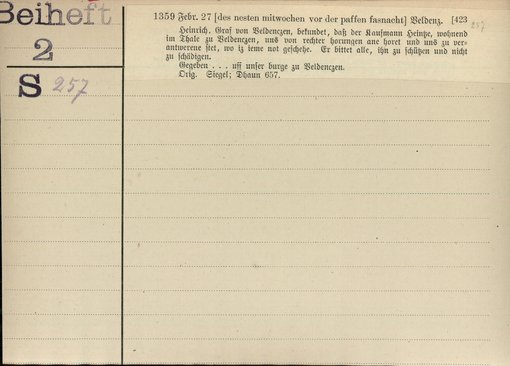 Beiheft
2
S 257
1359 Febr. 27 [des nesten mitwochen vor der paffen fasnacht] Veldenz. [423
257
Heinrich, Graf von Veldenczen, bekundet, daß der Kaufmann Heintze, wohnend
im Thale zu Veldenczen, uns von rechter horungen ane horet und uns zu ver-
antworene stet, wo iz ieme not geschehe. Er bittet alle, ihn zu schützen und nicht
zu schädigen.
Gegeben . . . uff unser burge zu Veldenczen.
Orig. Siegel; Dhaun 657.